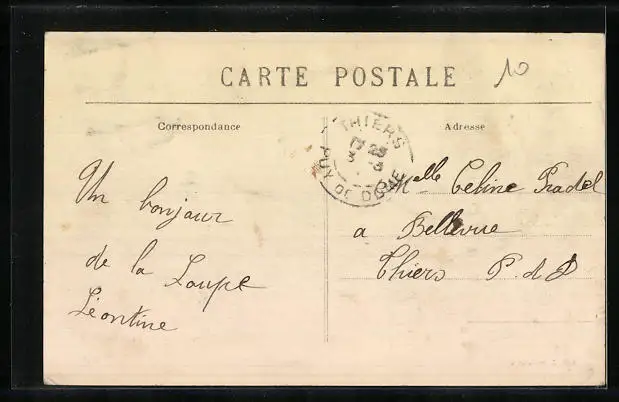 CARTE POSTALE
10
Correspondance
Adresse
THIERS
17 25
3 - 3
PUY DE DOME
Un bonjour
de la Loupe
Léontine
Melle Celine Pradel
a Bellevue
Thiers P. d D